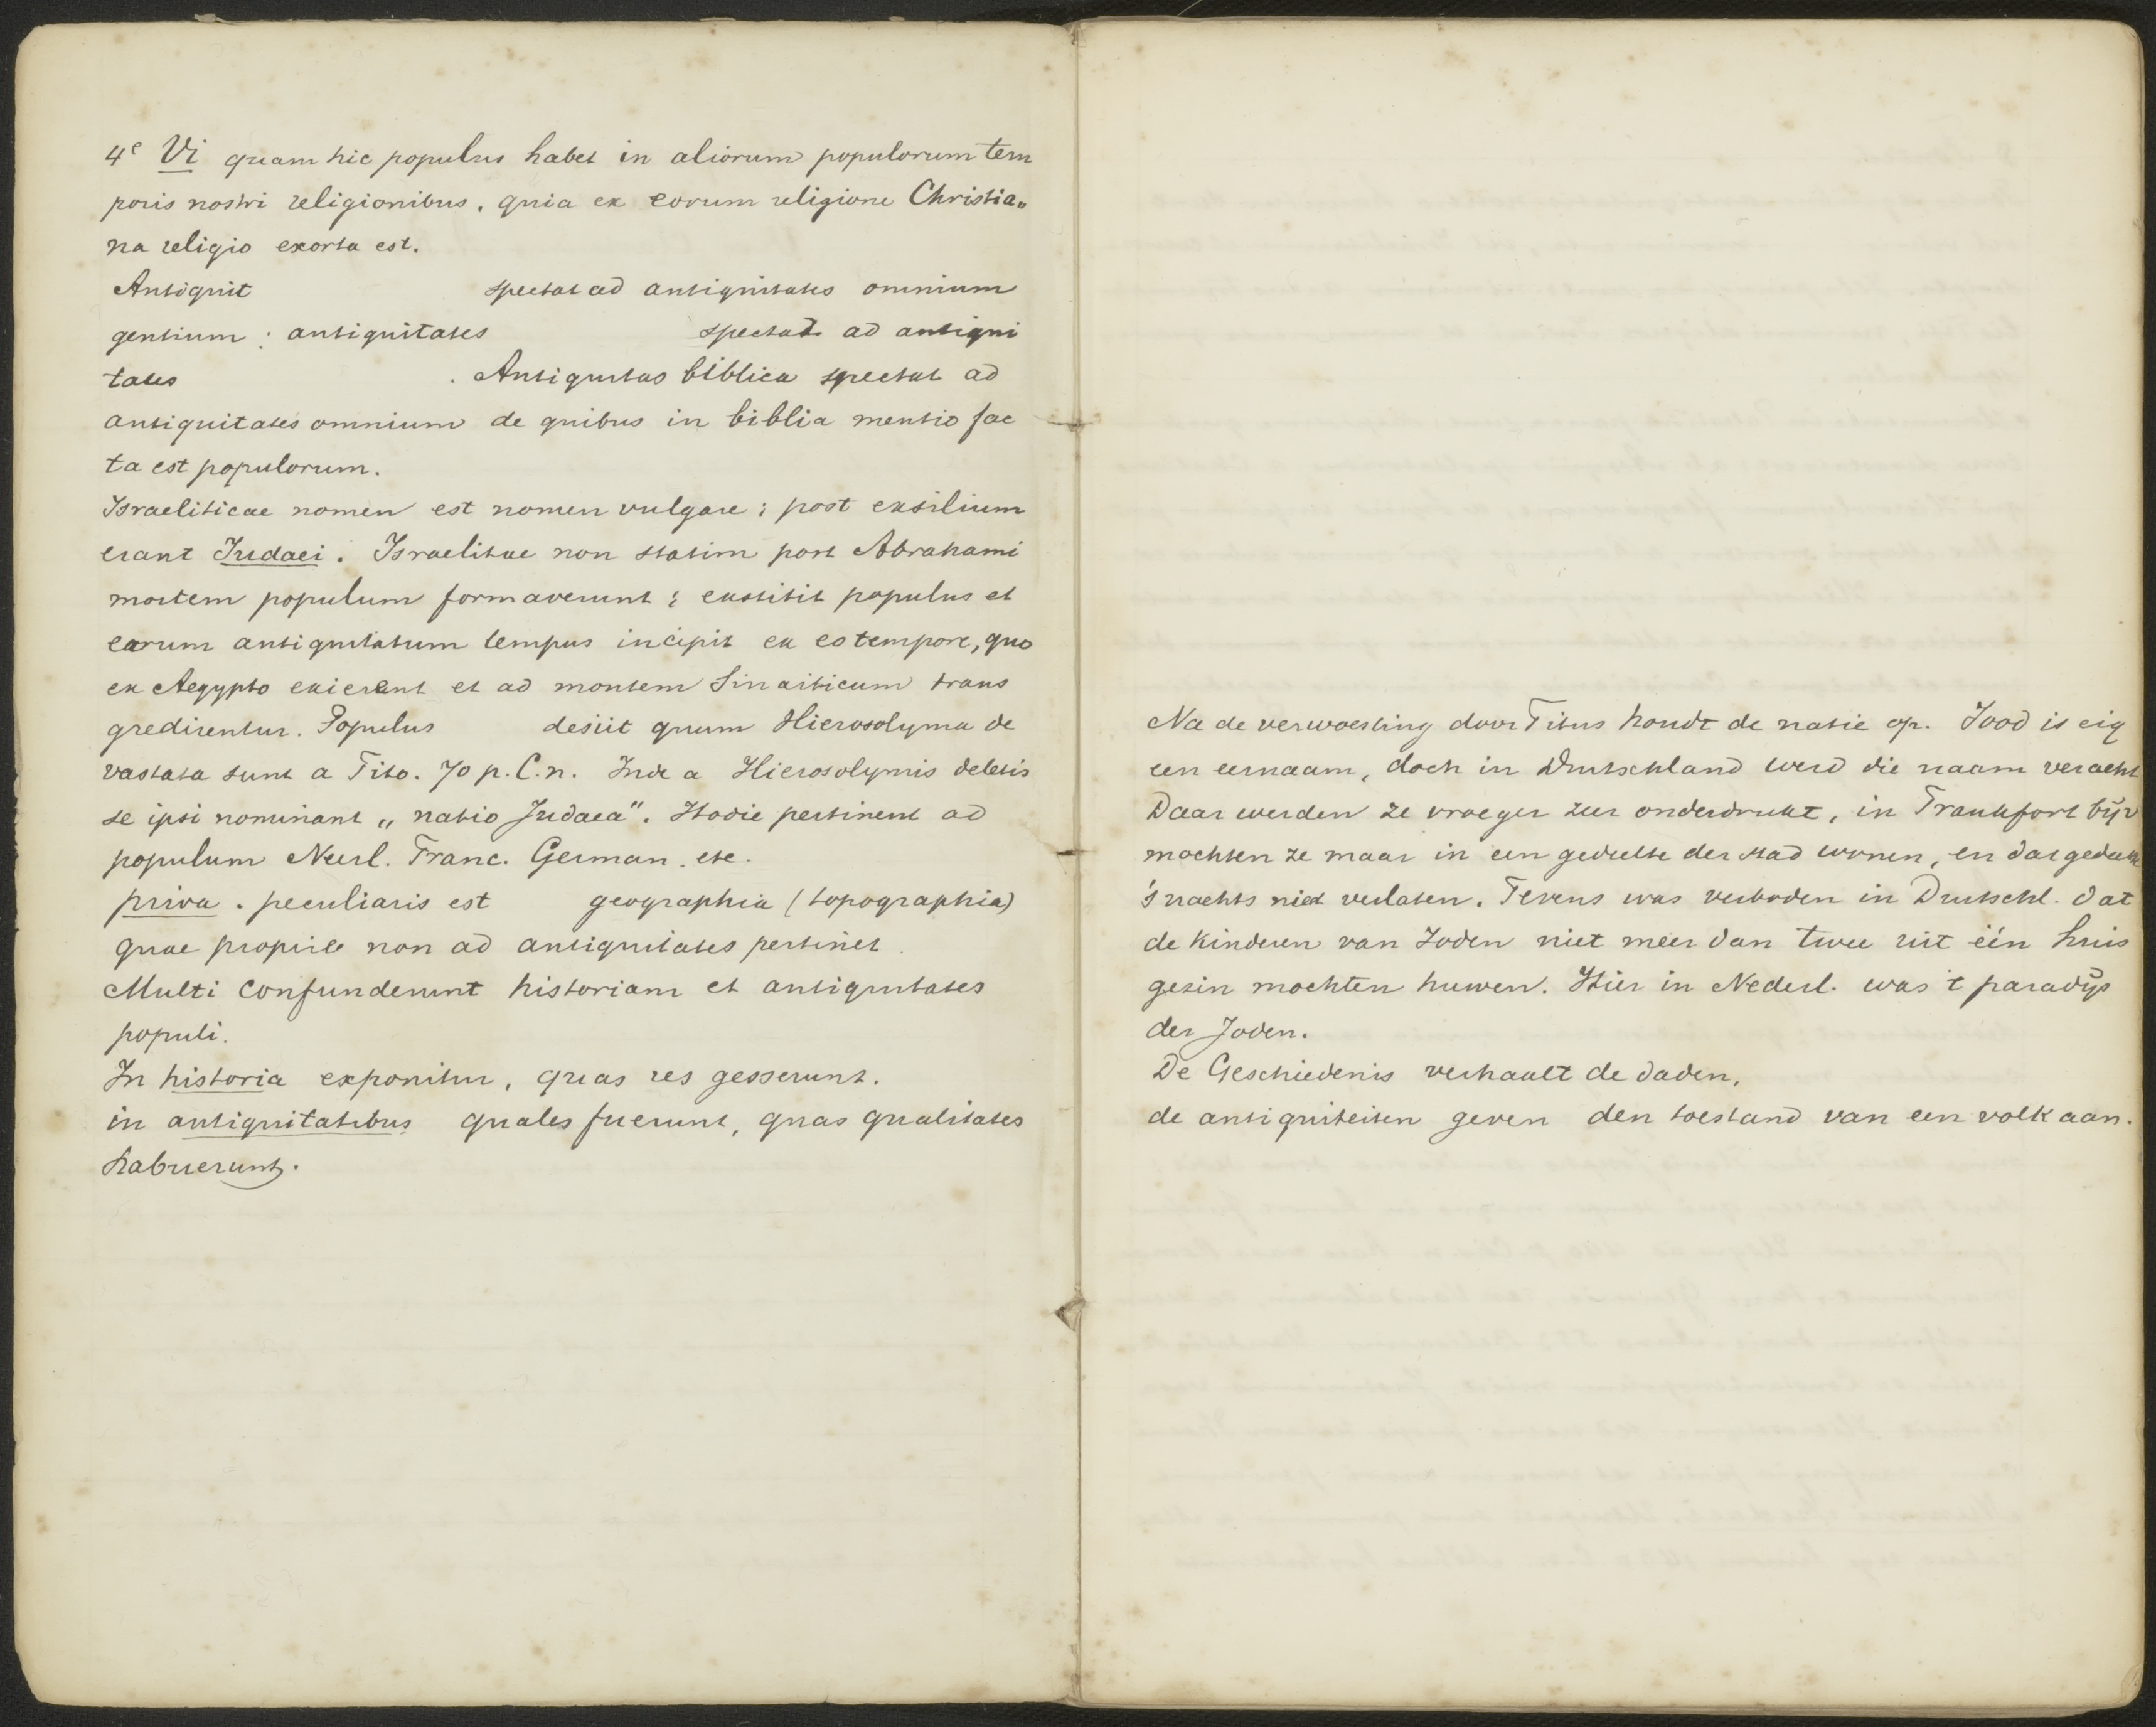 4e Vi quam hic populus habet in aliorum populorum tem
poris nostri religionibus, quia ex eorum religione Christia„
na religio exorta est.
Antiquit spectat ad antiquitates omnium
gentium : antiquitates spectat ad antiqui
tates . Antiquitas biblica spectat ad
antiquitates omnium de quibus in biblia mentio fac
ta est populorum.
Israeliticae nomen est nomen vulgare ; post exsilium
erant Iudaei. Israelitae non statim post Abrahami
mortem populum formaverunt ; exstitit populus et
earum antiquitatum tempus incipit ex eo tempore, quo
ex Aegypto exierant et ad montem Sinaiticum trans
gredirentur. Populus desiit quum Hierosolyma de
vastata sunt a Tito. 70 p. C. n. Inde a Hierosolymis deletis
se ipsi nominant „natio Judaea". Hodie pertinent ad
populum Neerl. Franc. German. etc.
priva. peculiaris est geographia (topographia)
quae proprie non ad antiquitates pertinet
Multi confunderunt historiam et antiquitates
populi.
In historia exponitur, quas res gesserunt.
in antiquitatibus quales fuerunt, quas qualitates
habuerunt.
Na de verwoesting door Titus houdt de natie op. Jood is eig
een eernaam, doch in Duitschland werd die naam veracht
Daar werden ze vroeger zeer onderdrukt, in Frankfort bijv
mochten ze maar in een gedeelte der stad wonen, en dat gedeelte
's nachts niet verlaten. Tevens was verboden in Duitschl. dat
de kinderen van Joden niet meer dan twee uit één huis
gezin mochten huwen. Hier in Nederl. was 't paradijs
der Joden.
De Geschiedenis verhaalt de daden,
de antiquiteiten geven den toestand van een volk aan.